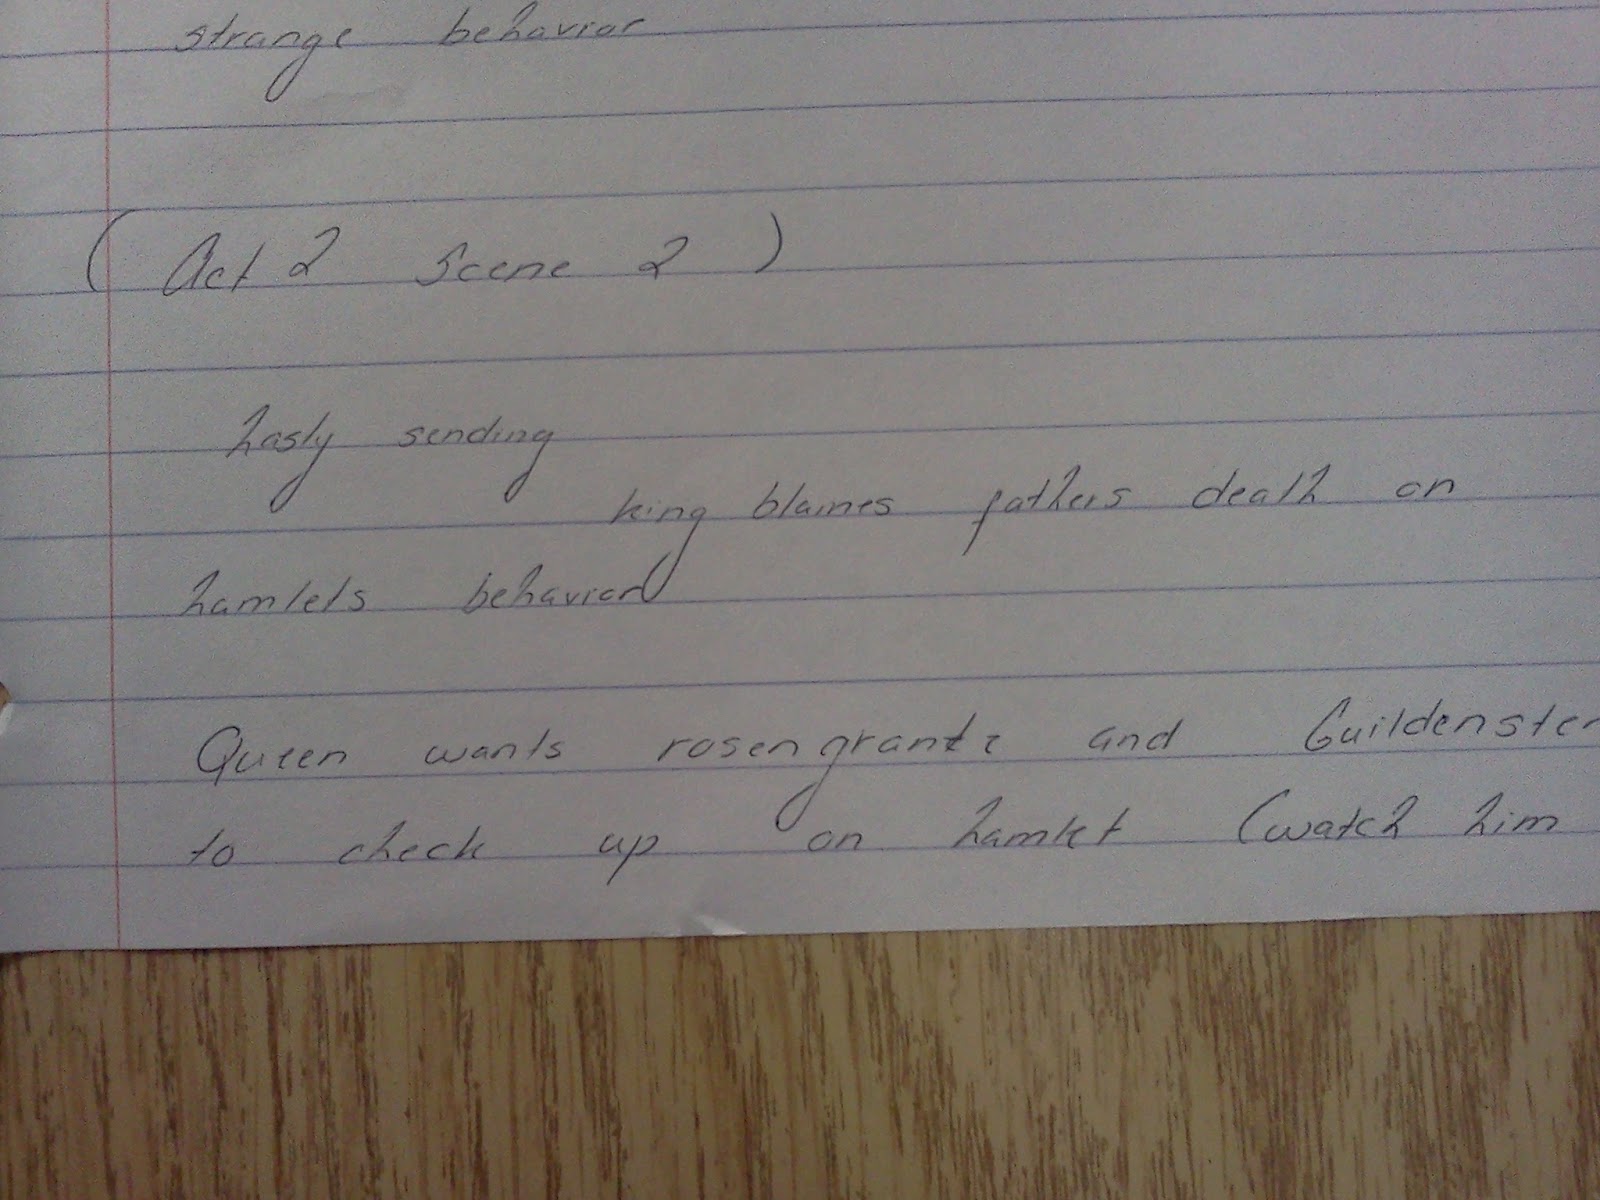 strange behavior
(Act 2 Scene 2)
hasly sending
king blames fathers death on
hamlets behavior
Queen wants rosengrantz and Guildenster
to check up on hamlet (watch him